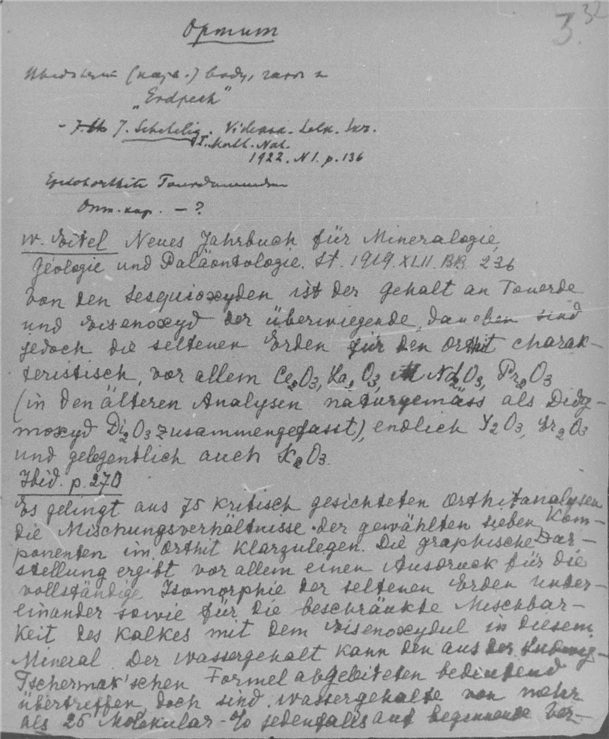 3. 32
Ортит
(назв.) воду, газов и
"Erdpech"
J. Schetelig. Vidensk. Selsk. Skr.
I. Math. Nat.
1922. N1. p. 136
W. Eitel Neues Jahrbuch für Mineralogie,
Geologie und Paläontologie. St. 1919. XLII. BB 236
Von den Sesquioxyden ist der Gehalt an Tonerde
und Eisenoxyd der überwiegende, daneben sind
jedoch die seltenen Erden für den Orthit charak-
teristisch, vor allem Ce2O3, La2O3, Nd2O3, Pr2O3
(in den älteren Analysen naturgemäss als Didy-
moxyd Di2O3 zusammengefasst), endlich Y2O3, Er2O3
und gelegentlich auch
Ibid. p. 270
Es gelingt aus 75 kritisch gesichteten Orthitanalysen
die Mischungsverhältnisse der gewählten sieben Kom-
ponenten im Orthit klarzulegen. Die graphische Dar-
stellung ergibt vor allem einen Ausdruck für die
vollständige Isomorphie der seltenen Erden unter-
einander sowie für die beschränkte Mischbar-
keit des Kalkes mit dem Eisenoxydul in diesem
Mineral. Der Wassergehalt kann den aus der Ludwig-
Tschermak'schen Formel abgeleiteten bedeutend
übertreffen, doch sind Wassergehalte von mehr
als 25 Molekular-% jedenfalls auf beginnende Ver-